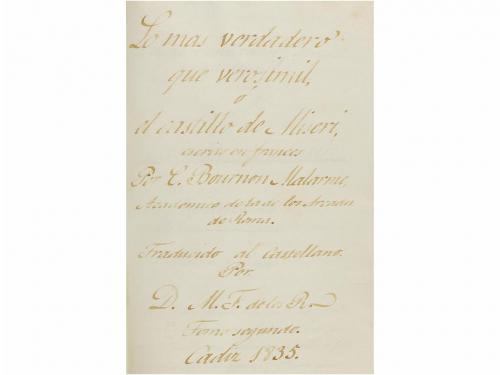 Lo mas verdadero
que verosimil,
o
el castillo de Miseri,
escrito en frances
Por C. Bournon Malarme,
Academico de la de los Arcades
de Roma.
Traducido al Castellano.
Por
D. M. F. de los R.
Tomo segundo.
Cadiz 1835.